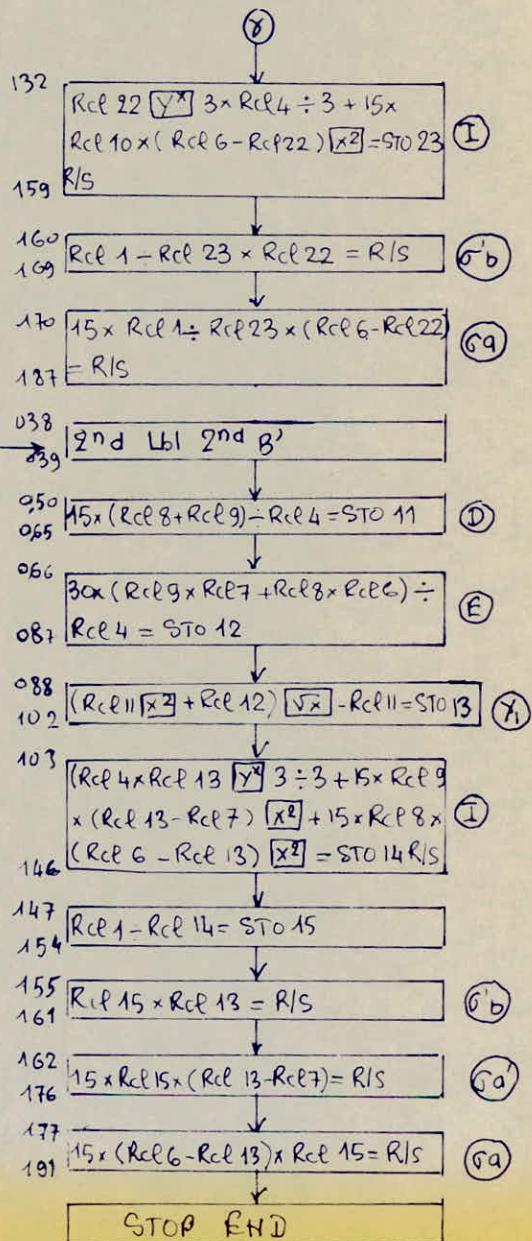 γ
132
Rcl 22 [Y^x] 3 × Rcl 4 ÷ 3 + 15 ×
Rcl 10 × ( Rcl 6 - Rcl 22 ) [x²] = STO 23
R/S
I
159
160
Rcl 1 ÷ Rcl 23 × Rcl 22 = R/S
σ'b
169
170
15 × Rcl 1 ÷ Rcl 23 × (Rcl 6 - Rcl 22)
= R/S
σa
187
038
2nd Lbl 2nd B'
039
050
15 × (Rcl 8 + Rcl 9) ÷ Rcl 4 = STO 11
D
065
066
30 × (Rcl 9 × Rcl 7 + Rcl 8 × Rcl 6) ÷
Rcl 4 = STO 12
E
087
088
(Rcl 11 [x²] + Rcl 12) [√x] - Rcl 11 = STO 13
Y₁
102
103
(Rcl 4 × Rcl 13 [Y^x] 3 ÷ 3 + 15 × Rcl 9
× (Rcl 13 - Rcl 7) [x²] + 15 × Rcl 8 ×
(Rcl 6 - Rcl 13) [x²] = STO 14 R/S
I
146
147
Rcl 1 ÷ Rcl 14 = STO 15
154
155
Rcl 15 × Rcl 13 = R/S
σ'b
161
162
15 × Rcl 15 × (Rcl 13 - Rcl 7) = R/S
σa'
176
177
15 × (Rcl 6 - Rcl 13) × Rcl 15 = R/S
σa
191
STOP END